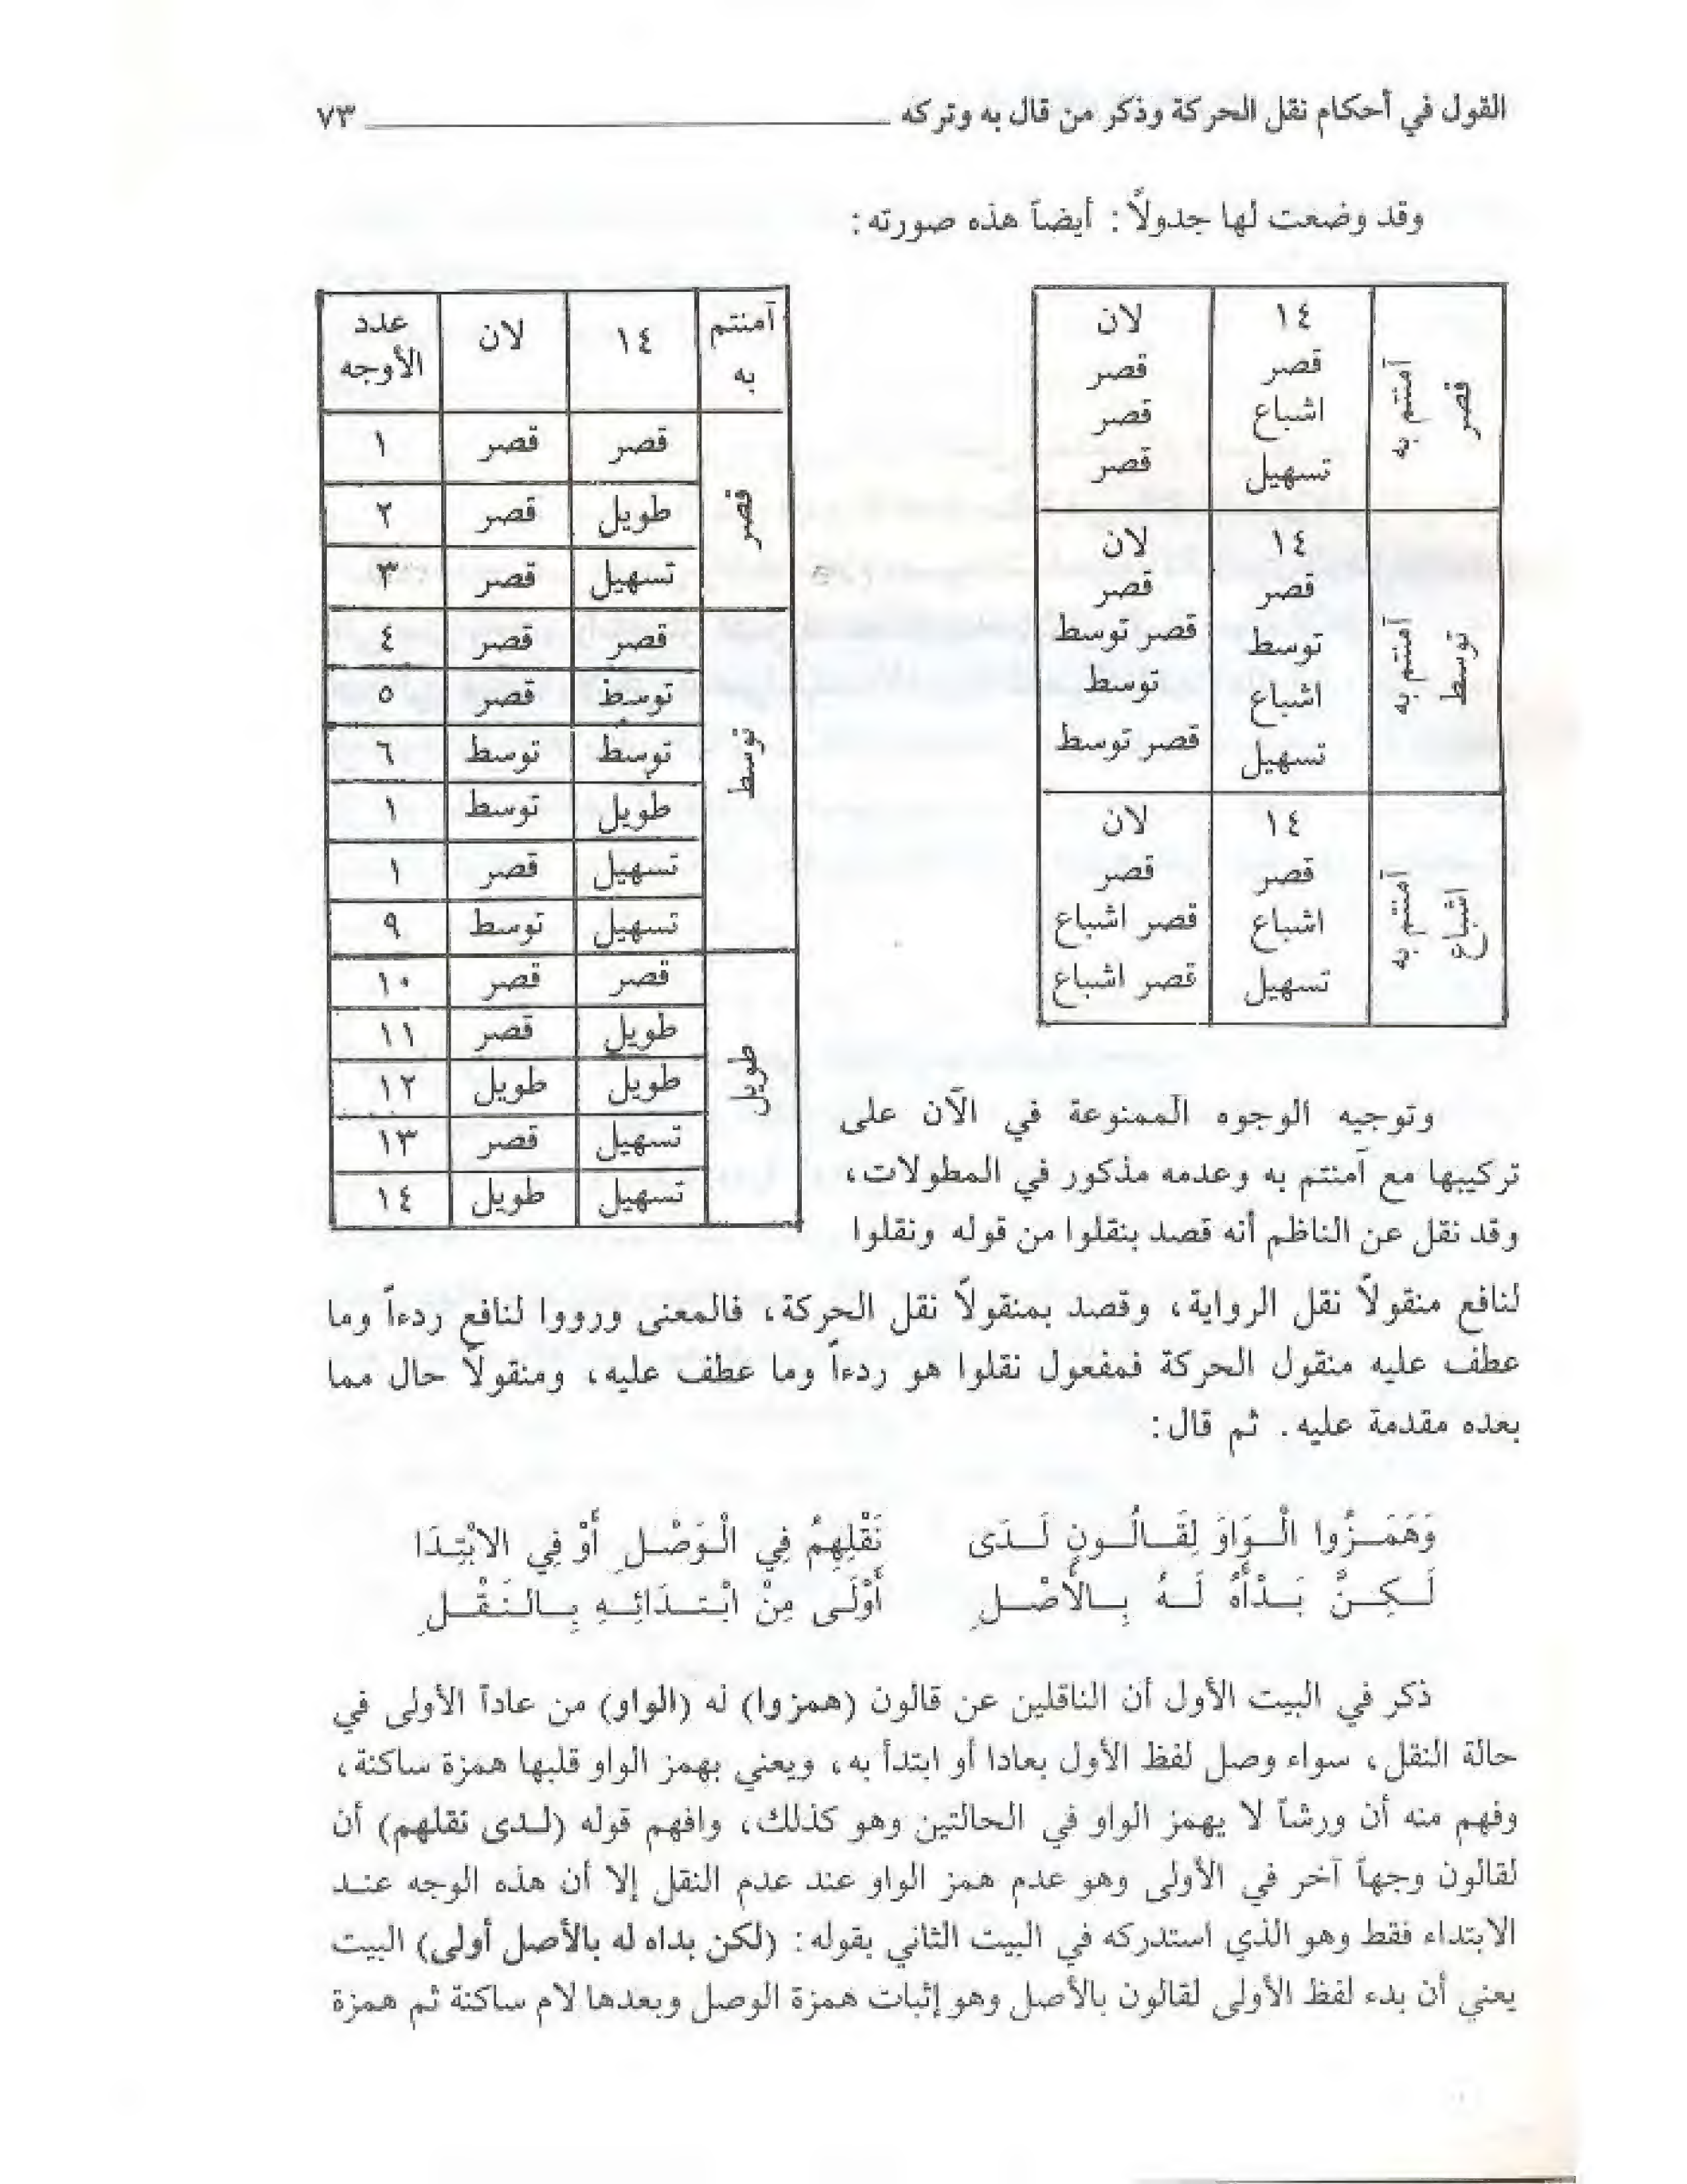 القول في أحكام نقل الحركة وذكر من قال به وتركه ٧٣
وقد وضعت لها جدولاً: أيضاً هذه صورته:
آمنتم به قصر
١٤ لان
قصر قصر
اشباع قصر
تسهيل قصر
آمنتم به توسط
١٤ لان
قصر قصر
توسط قصر توسط
اشباع توسط
تسهيل قصر توسط
آمنتم به اشباع
١٤ لان
قصر قصر
اشباع قصر اشباع
تسهيل قصر اشباع
آمنتم به ١٤ لان عدد الأوجه
قصر
قصر قصر ١
طويل قصر ٢
تسهيل قصر ٣
توسط
قصر قصر ٤
توسط قصر ٥
توسط توسط ٦
طويل توسط ١
تسهيل قصر ١
تسهيل توسط ٩
طويل
قصر قصر ١٠
طويل قصر ١١
طويل طويل ١٢
تسهيل قصر ١٣
تسهيل طويل ١٤
وتوجيه الوجوه الممنوعة في الآن على
تركيبها مع آمنتم به وعدمه مذكور في المطولات،
وقد نقل عن الناظم أنه قصد بنقلوا من قوله ونقلوا
لنافع منقولاً نقل الرواية، وقصد بمنقولاً نقل الحركة، فالمعنى ورووا لنافع ردءاً وما
عطف عليه منقول الحركة فمفعول نقلوا هو ردءاً وما عطف عليه، ومنقولاً حال مما
بعده مقدمة عليه. ثم قال:
وَهَمَـزُوا الْـوَاوَ لِقَـالُـونٍ لَـدَى نَقْلِهِمُ فِي الْـوَصْـلِ أَوْ فِي الابْتِـدَا
لَـكِـنَّ بَـدْأَهُ لَـهُ بِـالأَصْـلِ أَوْلَـى مِنْ ابْتِـدَائِـهِ بِـالنَـقْـلِ
ذكر في البيت الأول أن الناقلين عن قالون (همزوا) له (الواو) من عاداً الأولى في
حالة النقل، سواء وصل لفظ الأول بعادا أو ابتدأ به، ويعني بهمز الواو قلبها همزة ساكنة،
وفهم منه أن ورشاً لا يهمز الواو في الحالتين وهو كذلك، وافهم قوله (لـدى نقلهم) أن
لقالون وجهاً آخر في الأولى وهو عدم همز الواو عند عدم النقل إلا أن هذه الوجه عنـد
الابتداء فقط وهو الذي استدركه في البيت الثاني بقوله: (لكن بداه له بالأصل أولى) البيت
يعني أن بدء لفظ الأولى لقالون بالأصل وهو إثبات همزة الوصل وبعدها لام ساكنة ثم همزة